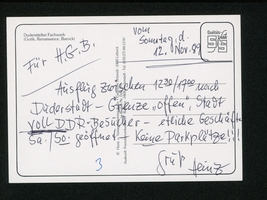 Duderstädter Fachwerk
(Gotik, Renaissance, Barock)
vom
Sonntag, d.
12. Nov. 89
Für H.G.B.
Ausflug zwischen 12³⁰/17⁰⁰ nach
Duderstadt – Grenze „offen", Stadt
voll DDR-Besucher – etliche Geschäfte
Sa./So. geöffnet – Keine Parkplätze!!!
Gruß
Heinz
3